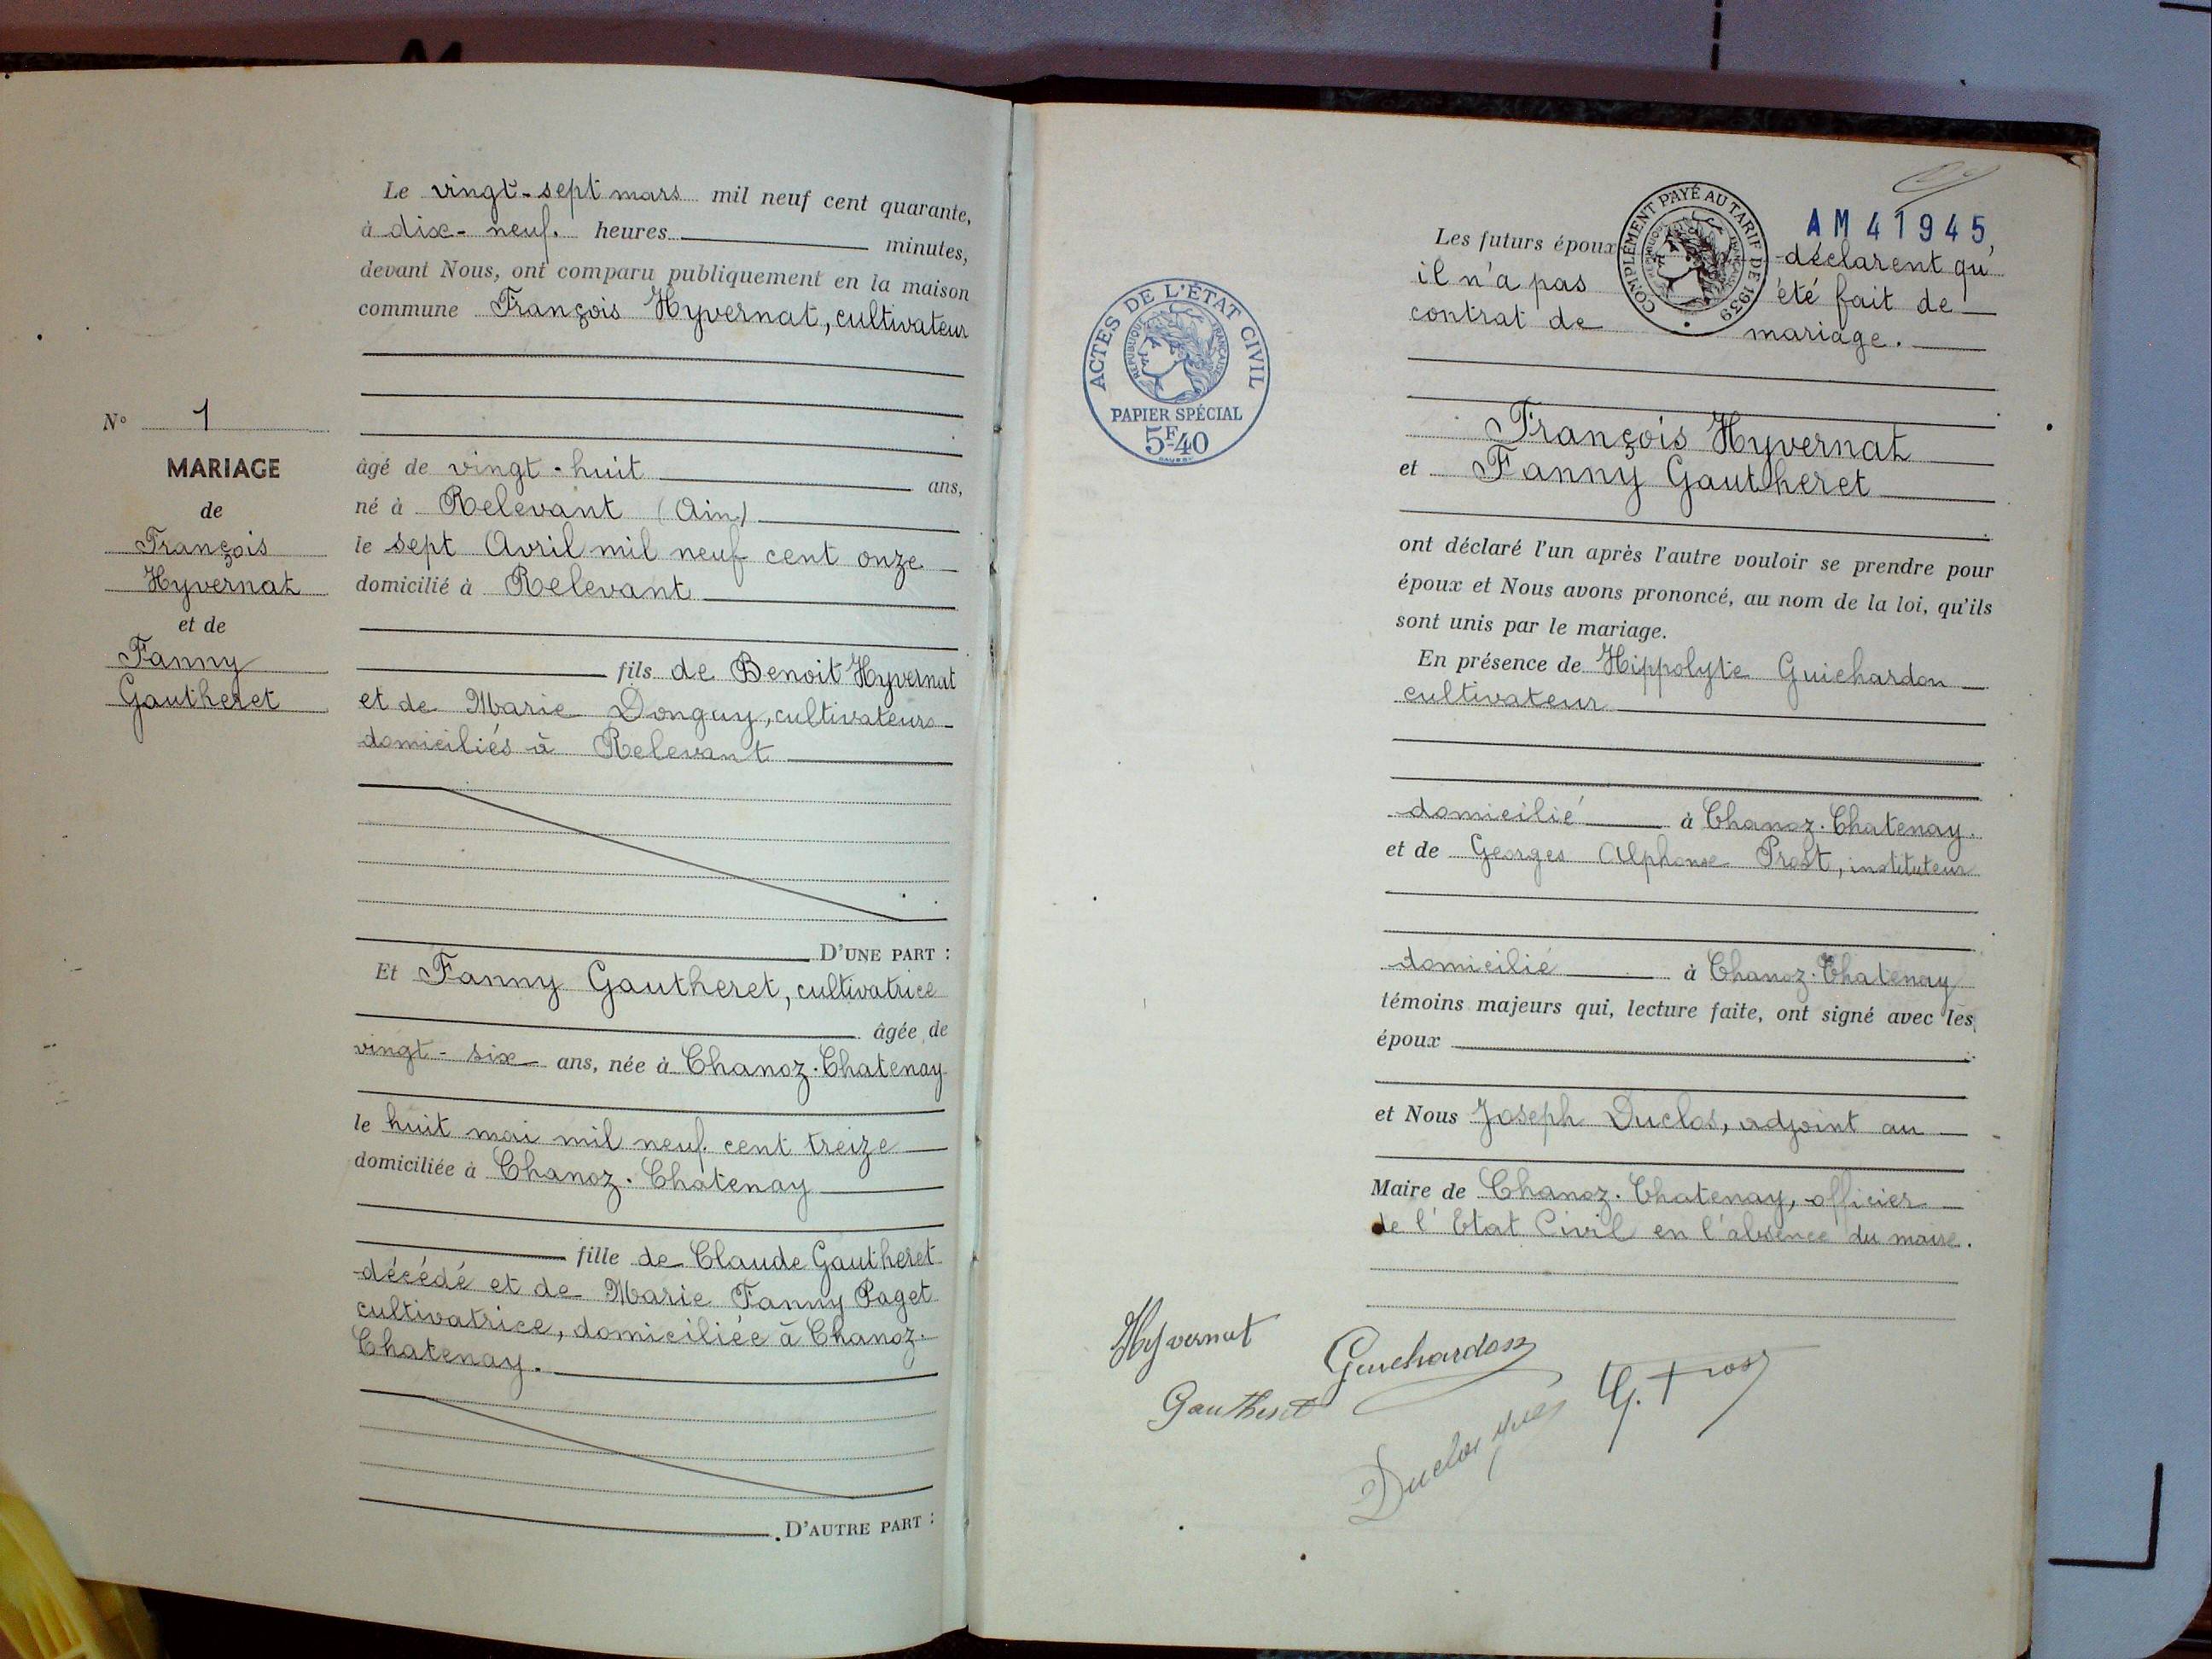 Le vingt-sept mars mil neuf cent quarante,
à dix-neuf heures minutes,
devant Nous, ont comparu publiquement en la maison
commune François Hyvernat, cultivateur
N° 1
MARIAGE
de
François
Hyvernat
et de
Fanny
Gautheret
âgé de vingt-huit ans,
né à Relevant (Ain)
le sept Avril mil neuf cent onze
domicilié à Relevant
fils de Benoit Hyvernat
et de Marie Donguy, cultivateurs
domiciliés à Relevant
D'UNE PART :
Et Fanny Gautheret, cultivatrice
âgée de
vingt-six ans, née à Chanoz-Chatenay
le huit mai mil neuf cent treize
domiciliée à Chanoz-Chatenay
fille de Claude Gautheret
décédé et de Marie Fanny Paget
cultivatrice, domiciliée à Chanoz-
Chatenay.
D'AUTRE PART :
ACTES DE L'ÉTAT CIVIL
RÉPUBLIQUE FRANÇAISE
PAPIER SPÉCIAL
5F-40
COMPLÉMENT PAYÉ AU TARIF DE 1939
AM 41945
Les futurs époux déclarent qu'
il n'a pas été fait de
contrat de mariage.
François Hyvernat
et Fanny Gautheret
ont déclaré l'un après l'autre vouloir se prendre pour
époux et Nous avons prononcé, au nom de la loi, qu'ils
sont unis par le mariage.
En présence de Hippolyte Guichardon
cultivateur
domicilié à Chanoz-Chatenay.
et de Georges Alphonse Prost, instituteur
domicilié à Chanoz-Chatenay
témoins majeurs qui, lecture faite, ont signé avec les
époux
et Nous Joseph Duclos, adjoint au
Maire de Chanoz-Chatenay, officier
de l'Etat Civil en l'absence du maire.
Hyvernat
Guichardon
G. Prost
Gautheret
Duclos